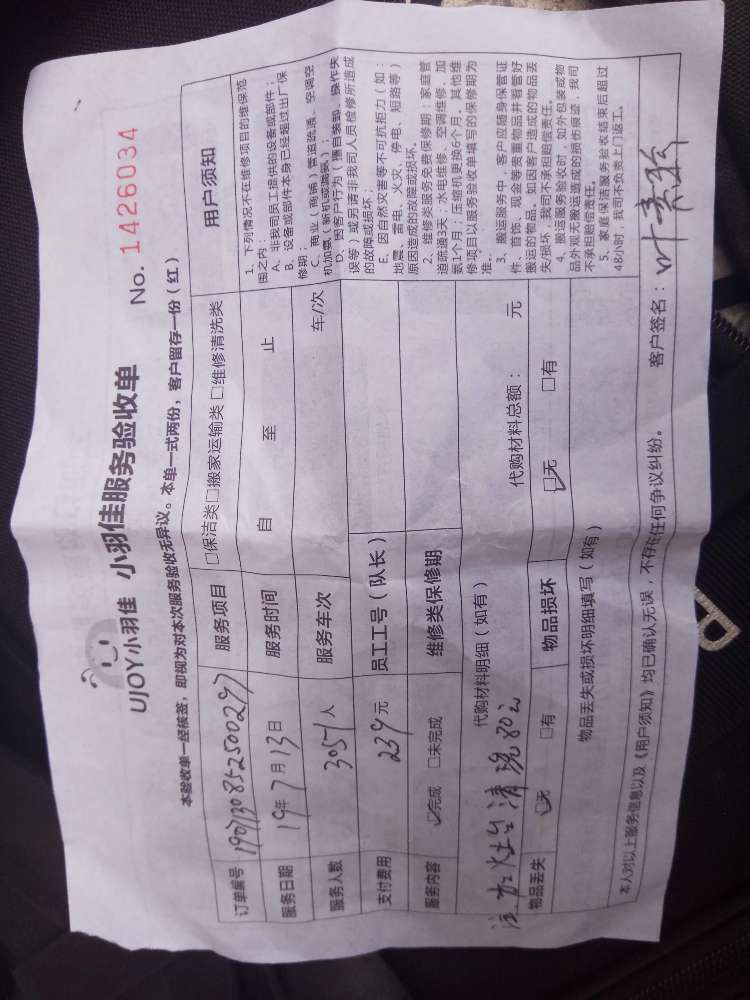 UJOY小羽佳 小羽佳服务验收单
No. 1426034
本验收单一经核签，即视为对本次服务验收无异议。本单一式两份，客户留存一份（红）
订单编号 190713085252500297 服务项目 □保洁类□搬家运输类□维修清洗类
服务日期 19年7月13日 服务时间 自 至 止
服务人数 3057人 服务车次 车/次
支付费用 239元 员工工号（队长）
服务内容 ☑完成 □未完成 维修类保修期
代购材料明细（如有） 代购材料总额： 元
灶台清洗80元
物品丢失 ☑无 □有 物品损坏 ☑无 □有
物品丢失或损坏明细填写（如有）
用户须知
1、下列情况不在维修项目的维保范
围之内：
A、非我司员工提供的设备或部件；
B、设备或部件本身已经超过出厂保
修期；
C、商业（商铺）管道疏通、空调空
机加氨（新机或漏氨）；
D、因客户行为（擅自装卸、操作失
误等）或另请非我司人员检修所造成
的故障或损坏；
E、因自然灾害等不可抗拒力（如：
地震、雷电、火灾、停电、短路等）
原因造成的故障或损坏。
2、维修类服务免费保修期：家庭管
道疏通3天；水电维修、空调维修、加
氨1个月；压缩机更换6个月，其他维
修项目以服务验收单填写的保修期为
准。
3、搬运服务中，客户应随身保管证
件、首饰、现金等贵重物品并看管好
搬运的物品。如因客户造成的物品丢
失/损坏，我司不承担赔偿责任。
4、搬运服务验收时，如外包装或物
品外观无搬运造成的损伤痕迹，我司
不承担赔偿责任。
5、家庭保洁服务验收结束后超过
48小时，我司不负责上门返工。
本人对以上服务信息以及《用户须知》均已确认无误，不存在任何争议纠纷。 客户签名：叶素珍